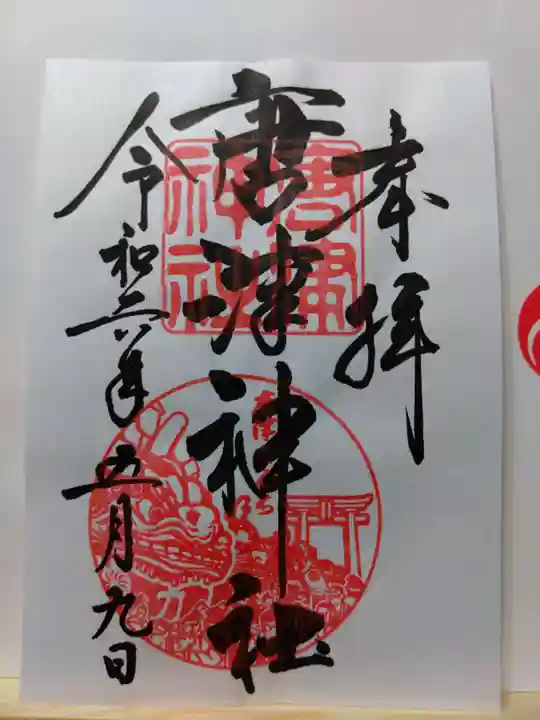 奉拝
唐津神社
令和六年五月九日
唐津
神社